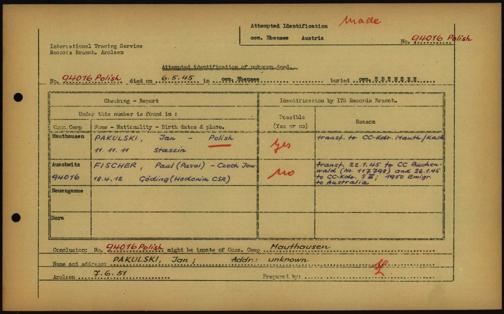 Attempted Identification Made
cem. Ebensee Austria
International Tracing Service
Records Branch, Arolsen
No. 94016 Polish
Attempted identification of unknown dead.
No. 94016 Polish died on 6.5.45 in cem. Ebensee buried cem. EBENSEE
Checking - Report
Identification by ITS Records Branch.
Under this number is found in :
Possible (Yes or no)
Reason
Conc. Camp Name - Nationality - Birth dates & place.
Mauthausen PAKULSKI, Jan - Polish Yes transf. to CC-Kdo. Mauth/
11.11.11 Staszin
Auschwitz FISCHER, Paul (Pavel) - Czech Jew no transf. 22.1.45 to CC Buchen-
94016 18.4.12 Göding (Hodonin CSR) wald (Nr. 117798) and 28.1.45
to CC-Kdo. S III; 1950 Emigr.
to Australia
Neuengamme
Dora
Conclusion: No. 94016 Polish might be inmate of Conc. Camp Mauthausen
Name and address: PAKULSKI, Jan; Addr: unknown
Arolsen 7.6.51 Prepared by: